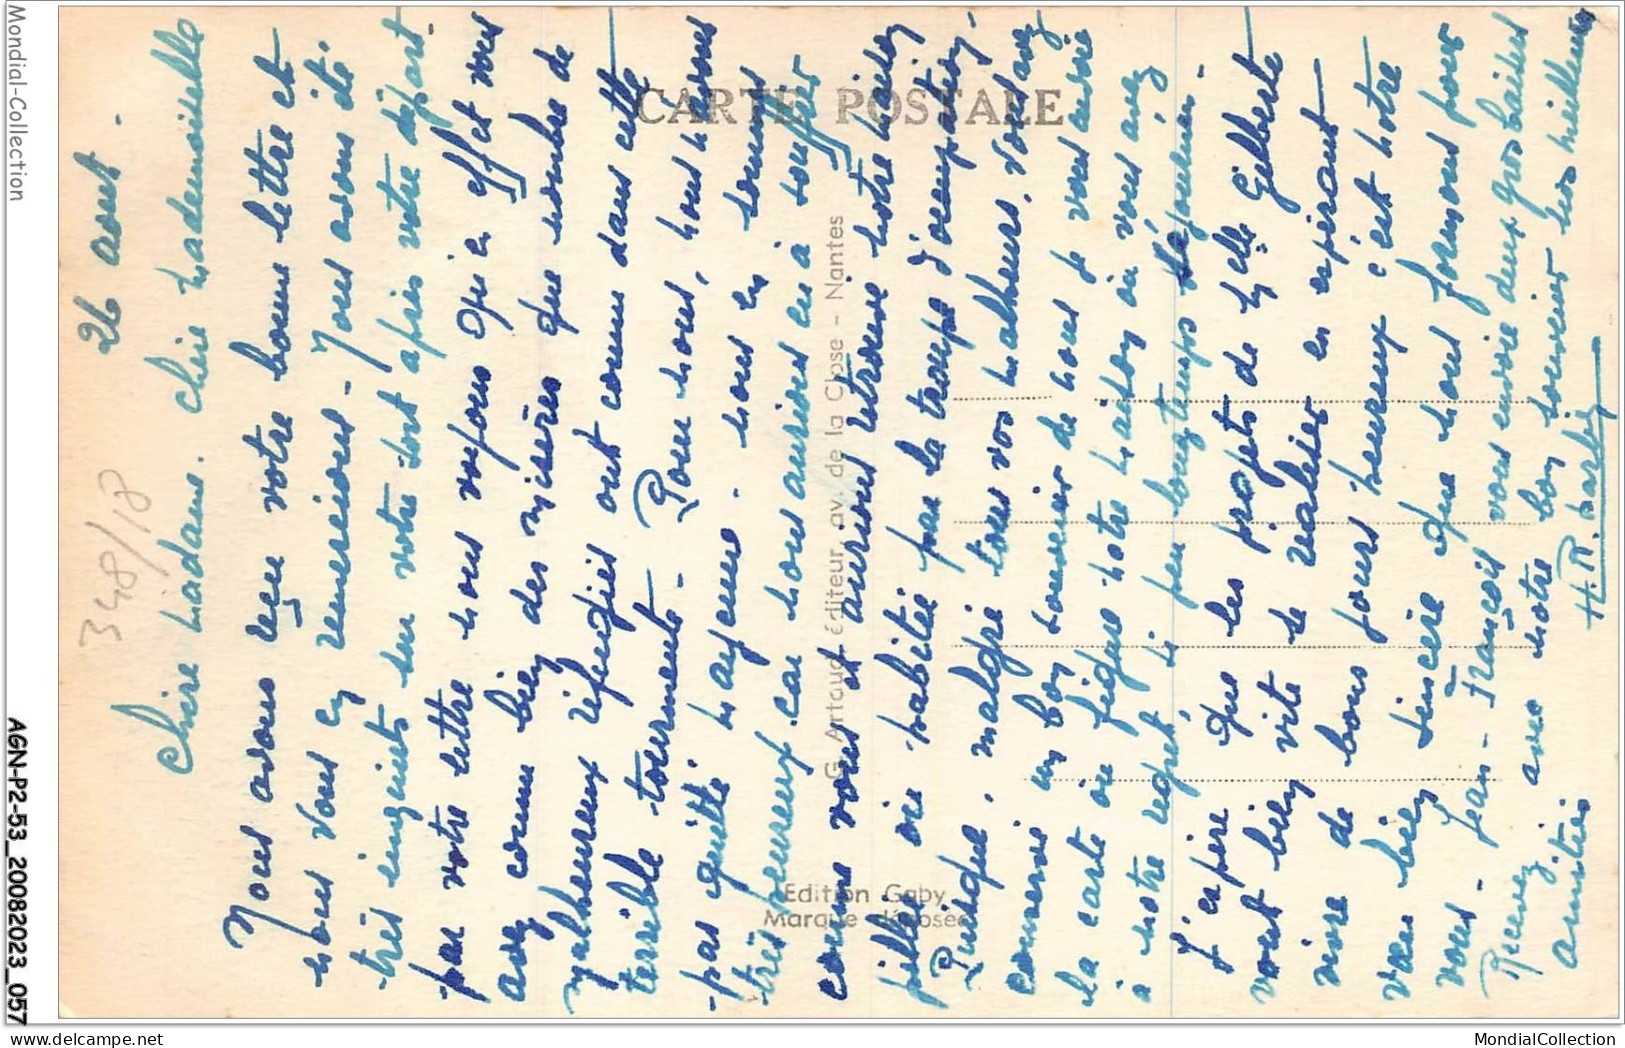 26 aout.
Chère Madame, chère Mademoiselle
Nous avons reçu votre bonne lettre et
nous vous en remercions - Nous avons été
très inquiets sur votre sort après votre départ.
par votre lettre nous voyons qu'en effet vous
avez connu bien des misères que nombre de
malheureux réfugiés ont connu dans cette
terrible tourmente. - Pour nous, nous n'avons
pas quitté Mayenne. nous en sommes
très heureux car nous aurions eu à souffrir
comme vous et aurions retrouvé notre maison
pillée ou habitée par la troupe d'occupation.
Puisque, malgré tous vos malheurs, vous avez
conservé un bon souvenir de nous je vous envoie
la carte où figure notre maison où vous avez
à notre regret, si peu longtemps séjourné. -
J'espère que les projets de Melle Gilberte
vont bien vite se réaliser en espérant
vivre de bons jours heureux c'est notre
vœu bien sincère que nous formons pour
vous. - Jean-François vous envoie deux gros baisers
Recevez avec notre bon souvenir nos meilleures
amitiés
H. R.
348/18
CARTE POSTALE
G. Artaud éditeur, av. de la Close - Nantes
Edition Gaby
Marque déposée
Mondial-Collection
AGN-P2-53_20082023_057
MondialCollection